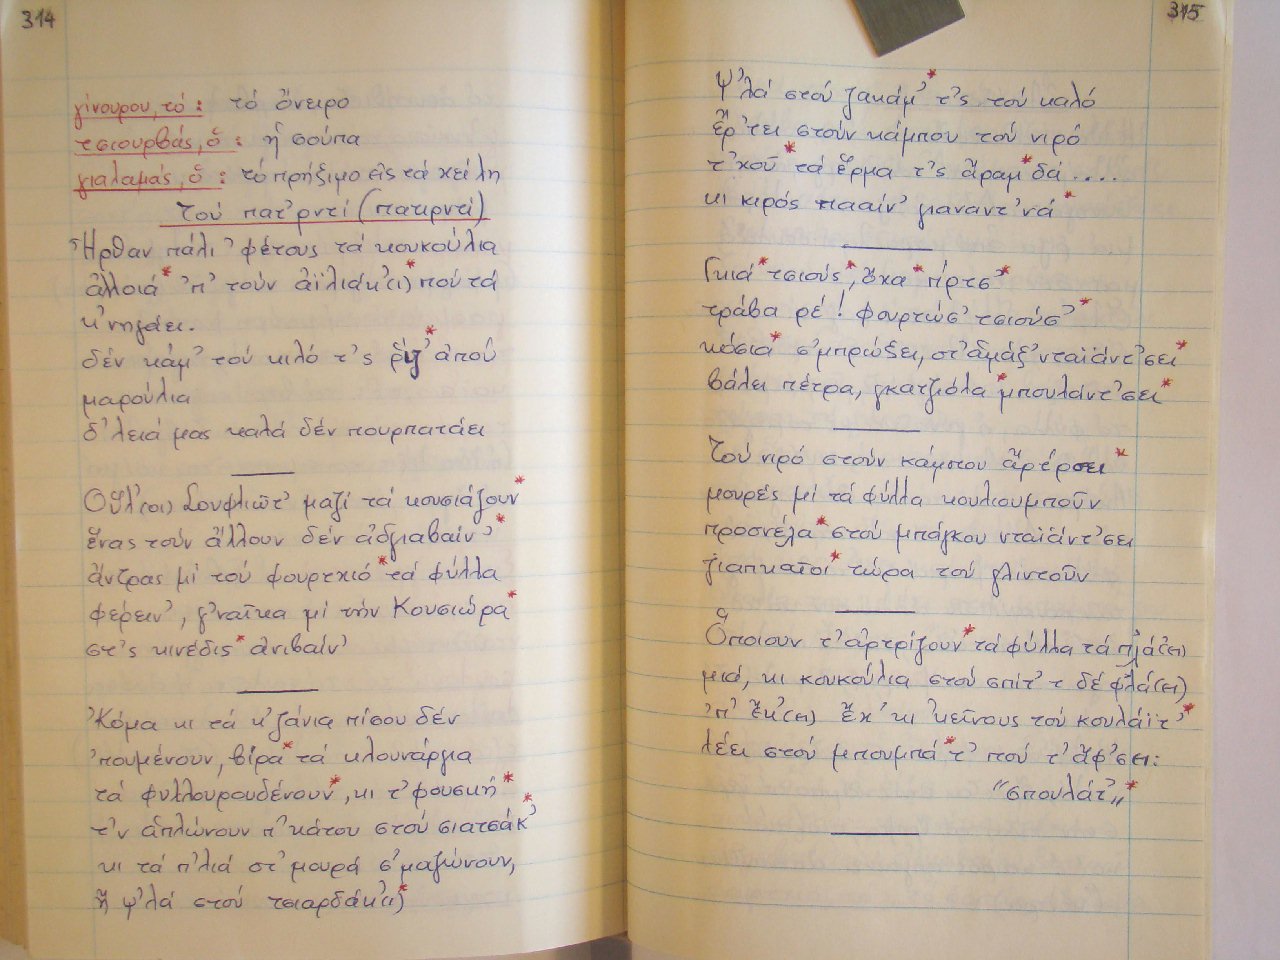 314
γίνουρου, τό: τό ὄνειρο
τσιουρβάς, ὁ: ἡ σούπα
γιαλαμάς, ὁ: τό πρήξιμο εἰς τά χείλη
Τού πατ'ρντί (πατιρντί)
Ἦρθαν πάλι 'φέτους τά κουκούλια
ἀλλοιά* 'π' τούν ἀϊλιάκ'(ι)* πού τά
κ'νηγάει.
δέν κάμ' τού κιλό τ'ς ρίζ'* ἀπού
μαρούλια
δ'λειά μας καλά δέν πουρπατάει
Οὗλ'(οι) Σουφλιῶτ' μαζί τά κουσιάζουν*
ἕνας τούν ἄλλουν δέν ἀδγιαβαίν'*
ἄντρας μί τού φουρτκιό* τά φύλλα
φέρειν', γ'ναῖκα μί τήν Κουσιώρα*
στ'ς κινέδις* ἀνιβαίν'
Ἀκόμα κι τά κ'ζάνια πίσου δέν
'πουμένουν, βίρα* τά κλουνάργια
τά φυλλουρουδένουν*, κι τ'φουσκή*
τ'ν ἁπλώνουν π'κάτου στού σιατσάκ'*
κι τά π'λιά στ' μουρά σ'μαζώνουν,
ἤ ψ'λά στού τσιαρδάκ'(ι)*
315
Ψ'λά στού τακάμ'* τ'ς τού καλό
ἔρ'τει στούν κάμπου τού νιρό
τ'χοῦ* τά ἔρμα τ'ς ἄραμ* δά ....
κι κιρός πααίν' γιαναντ'νά*
Γκιά* τσιούς*, ὄχα* πήρτσ'*
τράβα ρέ! φουρτώσ' τσιούσ'*
κόσια* σ'μπρώξει, στ'ἀμάξ' νταϊάντ'σει*
βάλει πέτρα, γκατζιόλα* μπουλάντ'σει*
Τού νιρό στούν κάμπου ἄρτέρσει*
μουρές μί τά φύλλα κουλιουμποῦν
προσνέλα* στού μπάγκου νταϊάντ'σει
γιαπκαῖοι* τώρα τού γλιντοῦν
Ὅποιουν τ'ἀρτρίζουν* τά φύλλα τά πλά(ει)
μιά, κι κουκούλια στού σπίτ' τ δέ φλά(ει)
'π' ἔκ'(ει) ἔχ' κι 'κείνους τού κουλάϊτ'*
λέει στού μπουμπά* τ' πού τ' ἄφ'σει:
"σπουλάτ'"*